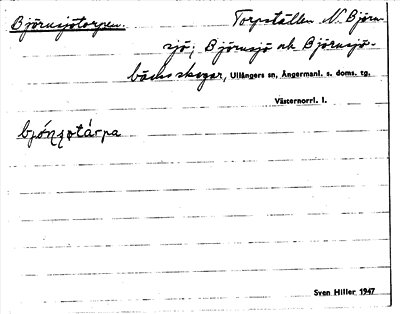 Björnsjötorpen. Torpställen N. Björn-
sjö; Björnsjö och Björnsjö-
bäcksskogar, Ullångers sn, Ångermanl. s. doms. tg.
Västernorrl. l.
Sven Hiller 1947